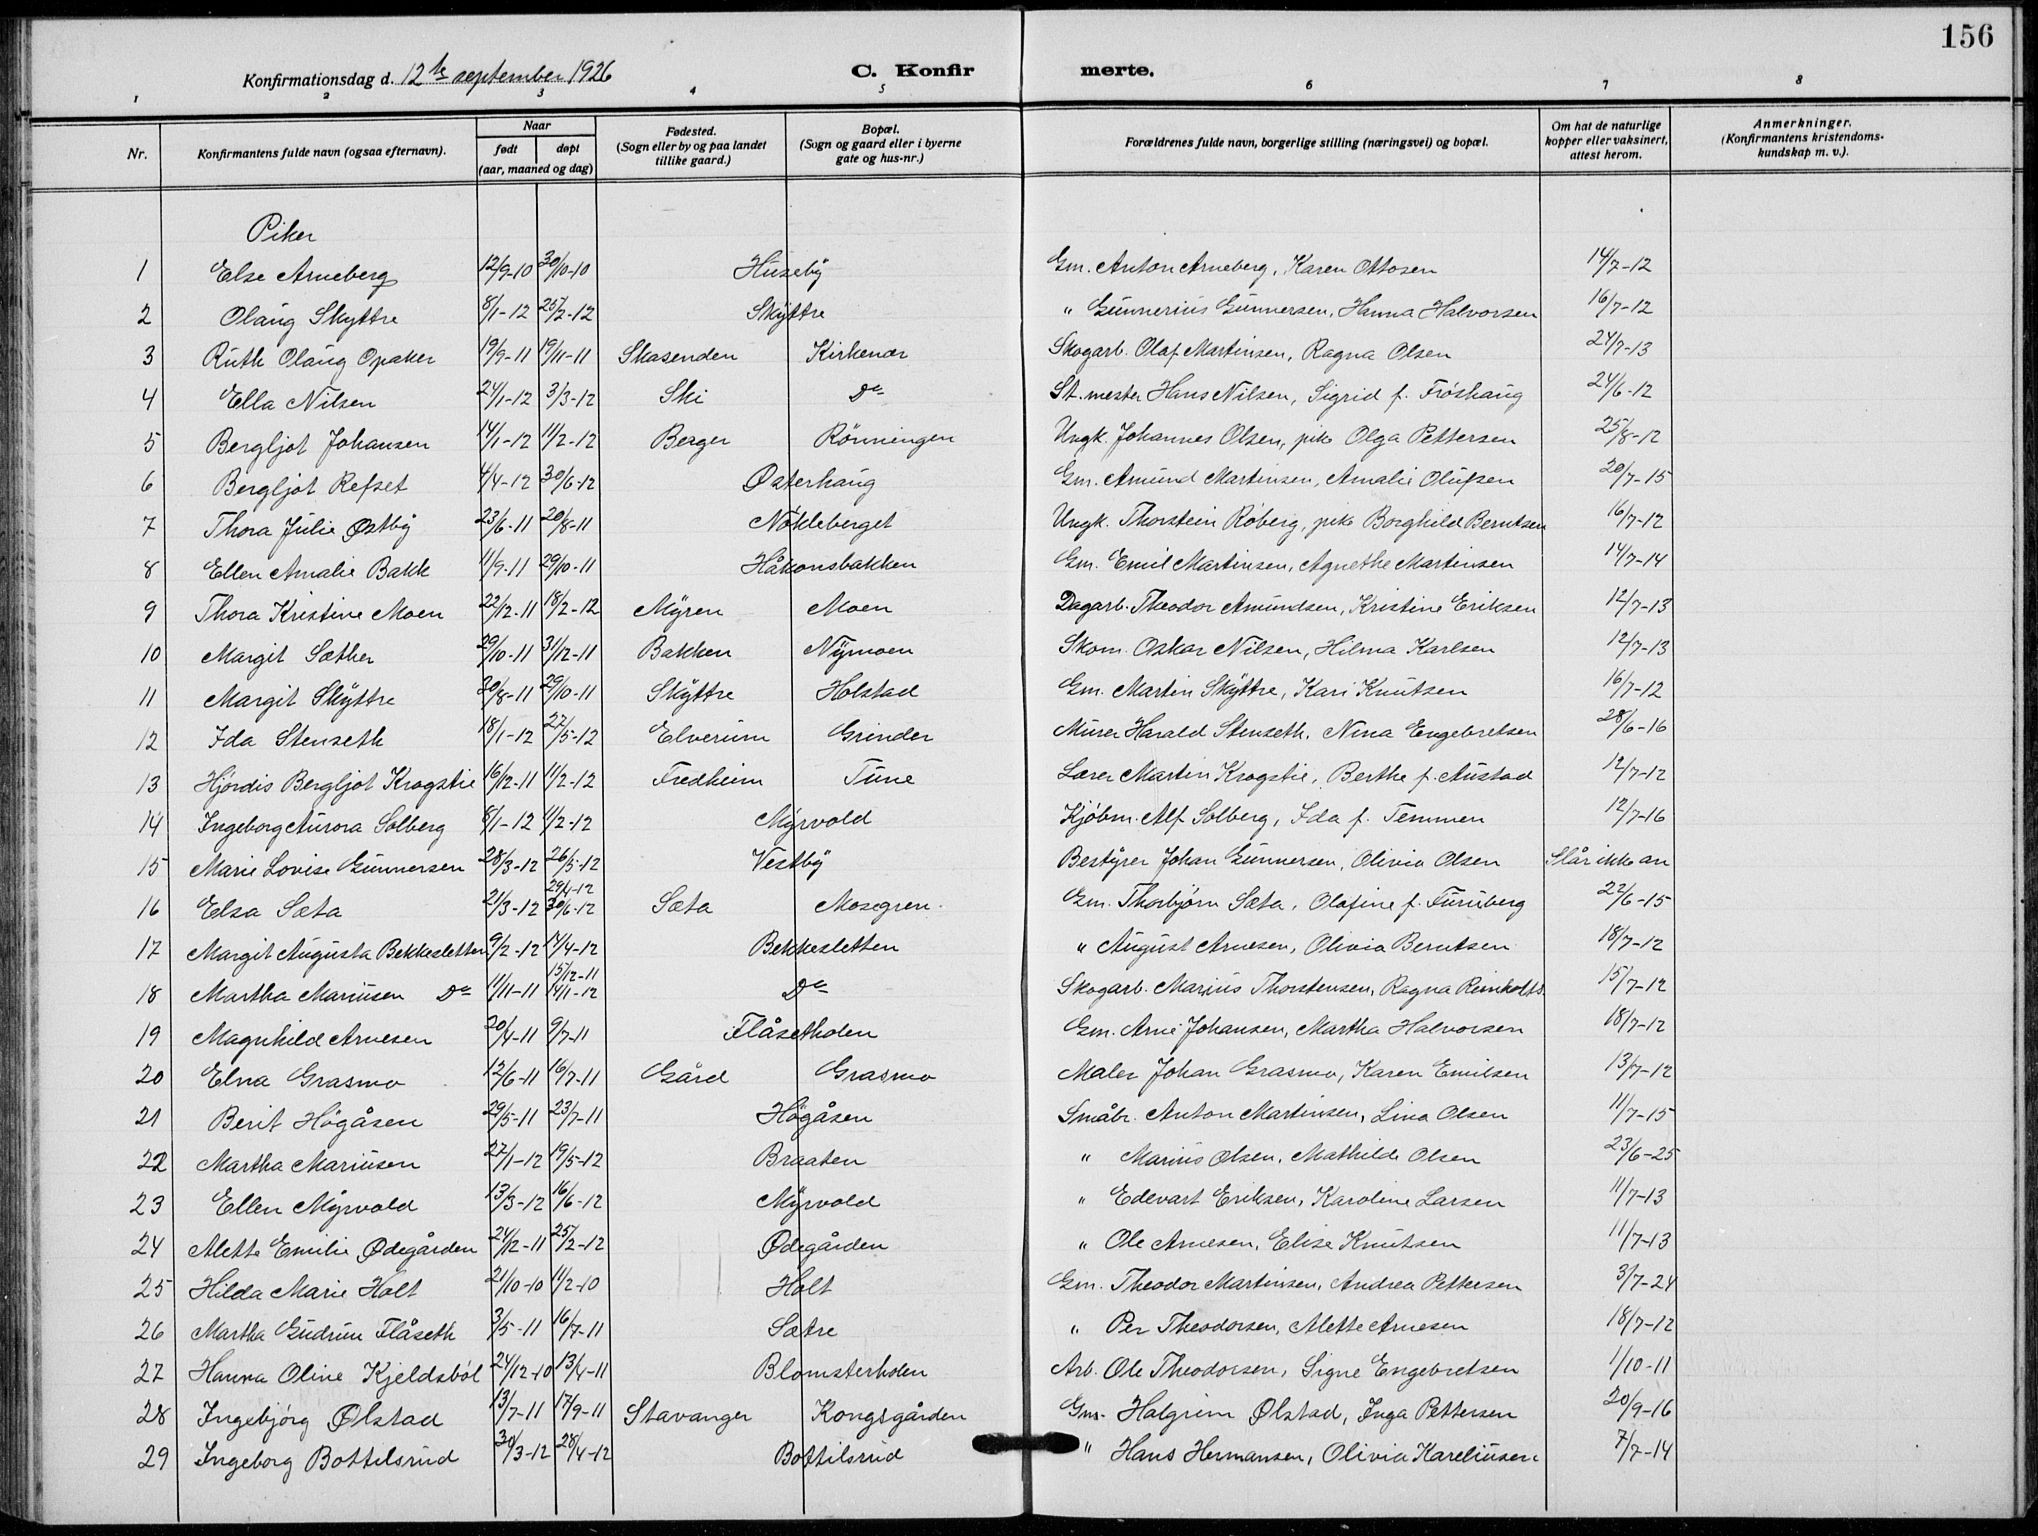 156
Konfirmationsdag d. 12te september 1926 C. Konfir merte.
1 2 3 4 5 6 7 8
Nr. Konfirmantens fulde navn (ogsaa efternavn). Naar født døpt (aar, maaned og dag) Fødested. (Sogn eller by og paa landet tillike gaard.) Bopæl. (Sogn og gaard eller i byerne gate og hus-nr.) Forældrenes fulde navn, borgerlige stilling (næringsvei) og bopæl. Om hat de naturlige kopper eller vaksinert, attest herom. Anmerkninger. (Konfirmantens kristendoms-kundskap m. v.).
Piker
1 Else Arneberg 12/9-10 30/10-10 Huseby Gm. Anton Arneberg, Karen Ottosen 14/7-12
2 Olaug Skyttre 8/1-12 25/2-12 Skyttre " Gunnerius Gunnersen, Hanna Halvorsen 16/7-12
3 Ruth Olaug Opaker 19/9-11 19/11-11 Skasenden Kirkenær Skogarb. Olaf Martinsen, Ragna Olsen 24/7-13
4 Ella Nilsen 24/1-12 3/3-12 Ski Do St. mester Hans Nilsen, Sigrid f. Frøshaug 24/6-12
5 Bergljot Johansen 14/1-12 11/2-12 Berger Rønningen Ungk. Johannes Olsen, pike Olga Pettersen 25/8-12
6 Bergljot Refset 4/4-12 30/6-12 Østerhaug Gm. Amund Martinsen, Amalie Olufsen 20/7-15
7 Thora Julie Østby 23/6-11 20/8-11 Nökleberget Ungk. Thorstein Røberg, pike Borghild Berntsen 16/7-12
8 Ellen Amalie Bakk 11/9-11 29/10-11 Håkonsbakken Gm. Emil Martinsen, Agnethe Martinsen 14/7-14
9 Thora Kristine Moen 22/12-11 18/2-12 Myren Moen Dagarb. Theodor Amundsen, Kristine Eriksen 12/7-13
10 Margit Sæther 29/10-11 31/12-11 Bakken Nymoen Skom. Oskar Nilsen, Hilma Karlsen 12/7-13
11 Margit Skyttre 20/8-11 29/10-11 Skyttre Holstad Gm. Martin Skyttre, Kari Knutsen 16/7-12
12 Ida Stenseth 18/1-12 27/5-12 Elverum Grinder Murer Harald Stenseth, Nina Engebretsen 28/6-16
13 Hjördis Bergljot Krogstie 16/12-11 11/2-12 Fredheim Tune Lærer Martin Krogstie, Berthe f. Austad 12/7-12
14 Ingeborg Aurora Solberg 8/1-12 11/2-12 Myrvold Kjøbm. Alf Solberg, Ida f. Temmen 12/7-16
15 Marie Lovise Gunnersen 28/3-12 26/5-12 Vestby Bestyrer Johan Gunnersen, Olivia Olsen Slår ikke an
16 Elsa Sæta 21/3-12 29/4-12 30/6-12 Sæta Mosegren. Gm. Thorbjørn Sæta, Olafine f. Furuberg 22/6-15
17 Margit Augusta Bekkesletten 9/2-12 14/4-12 Bekkesletten " August Arnesen, Olivia Berntsen 18/7-12
18 Martha Mariusen Do 11/11-11 15/12-11 14/1-12 Do Skogarb. Marius Thorstensen, Ragna Reinholts. 15/7-12
19 Magnhild Arnesen 20/4-11 9/7-11 Flåsetholen Gm. Arne Johansen, Martha Halvorsen 18/7-12
20 Elna Grasmo 12/6-11 16/7-11 Gård Grasmo Maler Johan Grasmo, Karen Emilsen 13/7-12
21 Berit Högåsen 29/5-11 23/7-11 Högåsen Småbr. Anton Martinsen, Lina Olsen 11/7-15
22 Martha Mariusen 27/1-12 19/5-12 Braaten " Marius Olsen, Mathilde Olsen 23/6-25
23 Ellen Myrvold 13/3-12 16/6-12 Myrvold " Edevart Eriksen, Karoline Larsen 11/7-13
24 Alette Emilie Ødegården 24/12-11 25/2-12 Ødegården " Ole Arnesen, Elise Knutsen 11/7-13
25 Hilda Marie Holt 21/10-10 11/2-10 Holt Gm. Theodor Martinsen, Andrea Pettersen 3/7-24
26 Martha Gudrun Flåseth 3/5-11 16/7-11 Sætre " Per Theodorsen, Alette Arnesen 18/7-12
27 Hanna Oline Kjeldsböl 24/12-10 13/4-11 Blomsterholen Arb. Ole Theodorsen, Signe Engebretsen 1/10-11
28 Ingebjörg Ølstad 13/7-11 17/9-11 Stavanger Kongsgården Gm. Halgrim Ølstad, Inga Pettersen 20/9-16
29 Ingeborg Bottilsrud 30/3-12 28/4-12 Bottilsrud " Hans Hermansen, Olivia Kareliusen 7/7-14